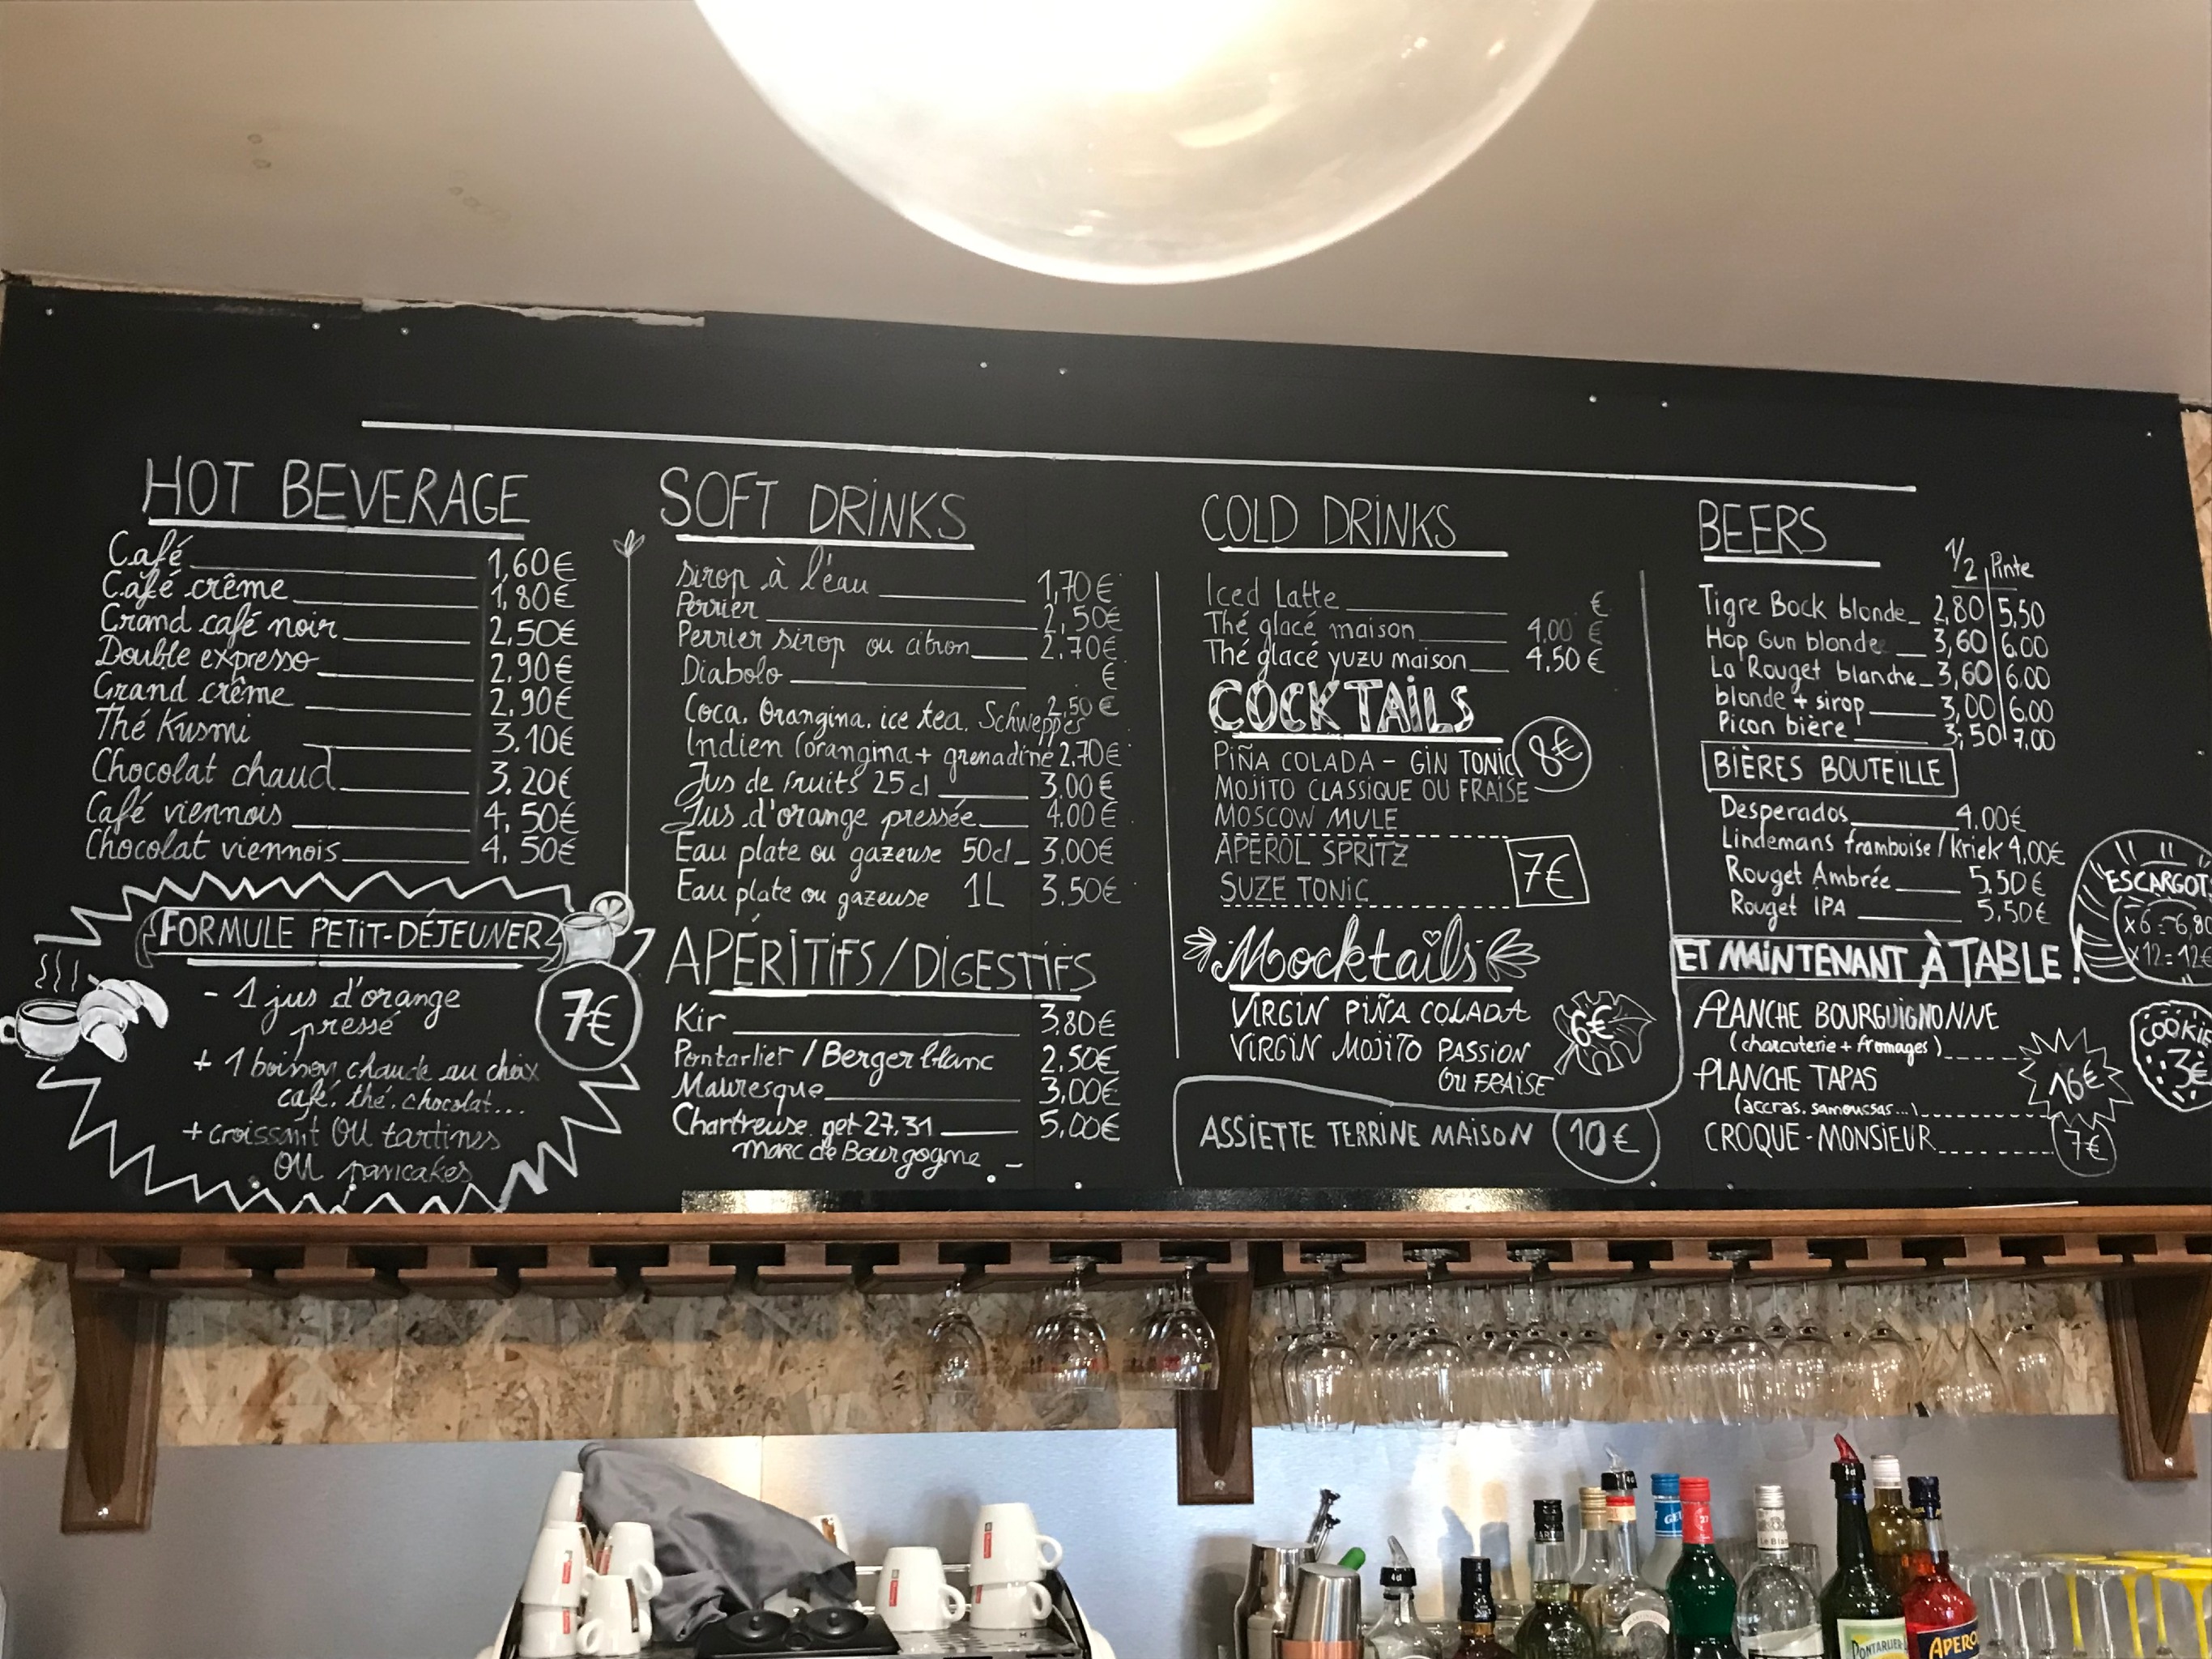 HOT BEVERAGE
Café 1,60€
Café crême 1,80€
Grand café noir 2,50€
Double expresso 2,90€
Grand crême 2,90€
Thé Kusmi 3.10€
Chocolat chaud 3,20€
Café viennois 4,50€
Chocolat viennois 4,50€
FORMULE PETIT-DÉJEUNER
7€
- 1 jus d'orange
pressé
+ 1 boisson chaude au choix
café, thé, chocolat...
+ croissant OU tartines
OU pancakes
SOFT DRINKS
sirop à l'eau 1,70€
Perrier 2,50€
Perrier sirop ou citron 2,70€
Diabolo €
Coca, Orangina, ice tea, Schweppes 2,50€
Indien (orangina + grenadine 2,70€
Jus de fruits 25cl 3,00€
Jus d'orange pressée 4,00€
Eau plate ou gazeuse 50cl 3,00€
Eau plate ou gazeuse 1L 3.50€
APÉRITIFS/DIGESTIFS
Kir 3,80€
Pontarlier / Berger blanc 2,50€
Mauresque 3,00€
Chartreuse, get 27,31 5,00€
Marc de Bourgogne
COLD DRINKS
Iced Latte €
Thé glacé maison 4,00 €
Thé glacé yuzu maison 4,50 €
COCKTAILS
PIÑA COLADA - GIN TONIC 8€
MOJITO CLASSIQUE OU FRAISE
MOSCOW MULE
APEROL SPRITZ 7€
SUZE TONIC
Mocktails
VIRGIN PIÑA COLADA 6€
VIRGIN MOJITO PASSION
OU FRAISE
ASSIETTE TERRINE MAISON 10€
BEERS
1/2 Pinte
Tigre Bock blonde 2,80 5,50
Hop Gun blonde 3,60 6.00
La Rouget blanche 3,60 6.00
blonde + sirop 3,00 6,00
Picon bière 3,50 7,00
BIÈRES BOUTEILLE
Desperados 4,00€
Lindemans framboise/Kriek 4,00€
Rouget Ambrée 5,50€
Rouget IPA 5,50€
ESCARGOTS
x6 = 6,80
x12 = 12€
ET MAINTENANT À TABLE!
PLANCHE BOURGUIGNONNE
(charcuterie + fromages)
PLANCHE TAPAS 16€
(accras, samoussas...)
CROQUE-MONSIEUR 7€
COOKIE
3€
PONTARLIER
APEROL